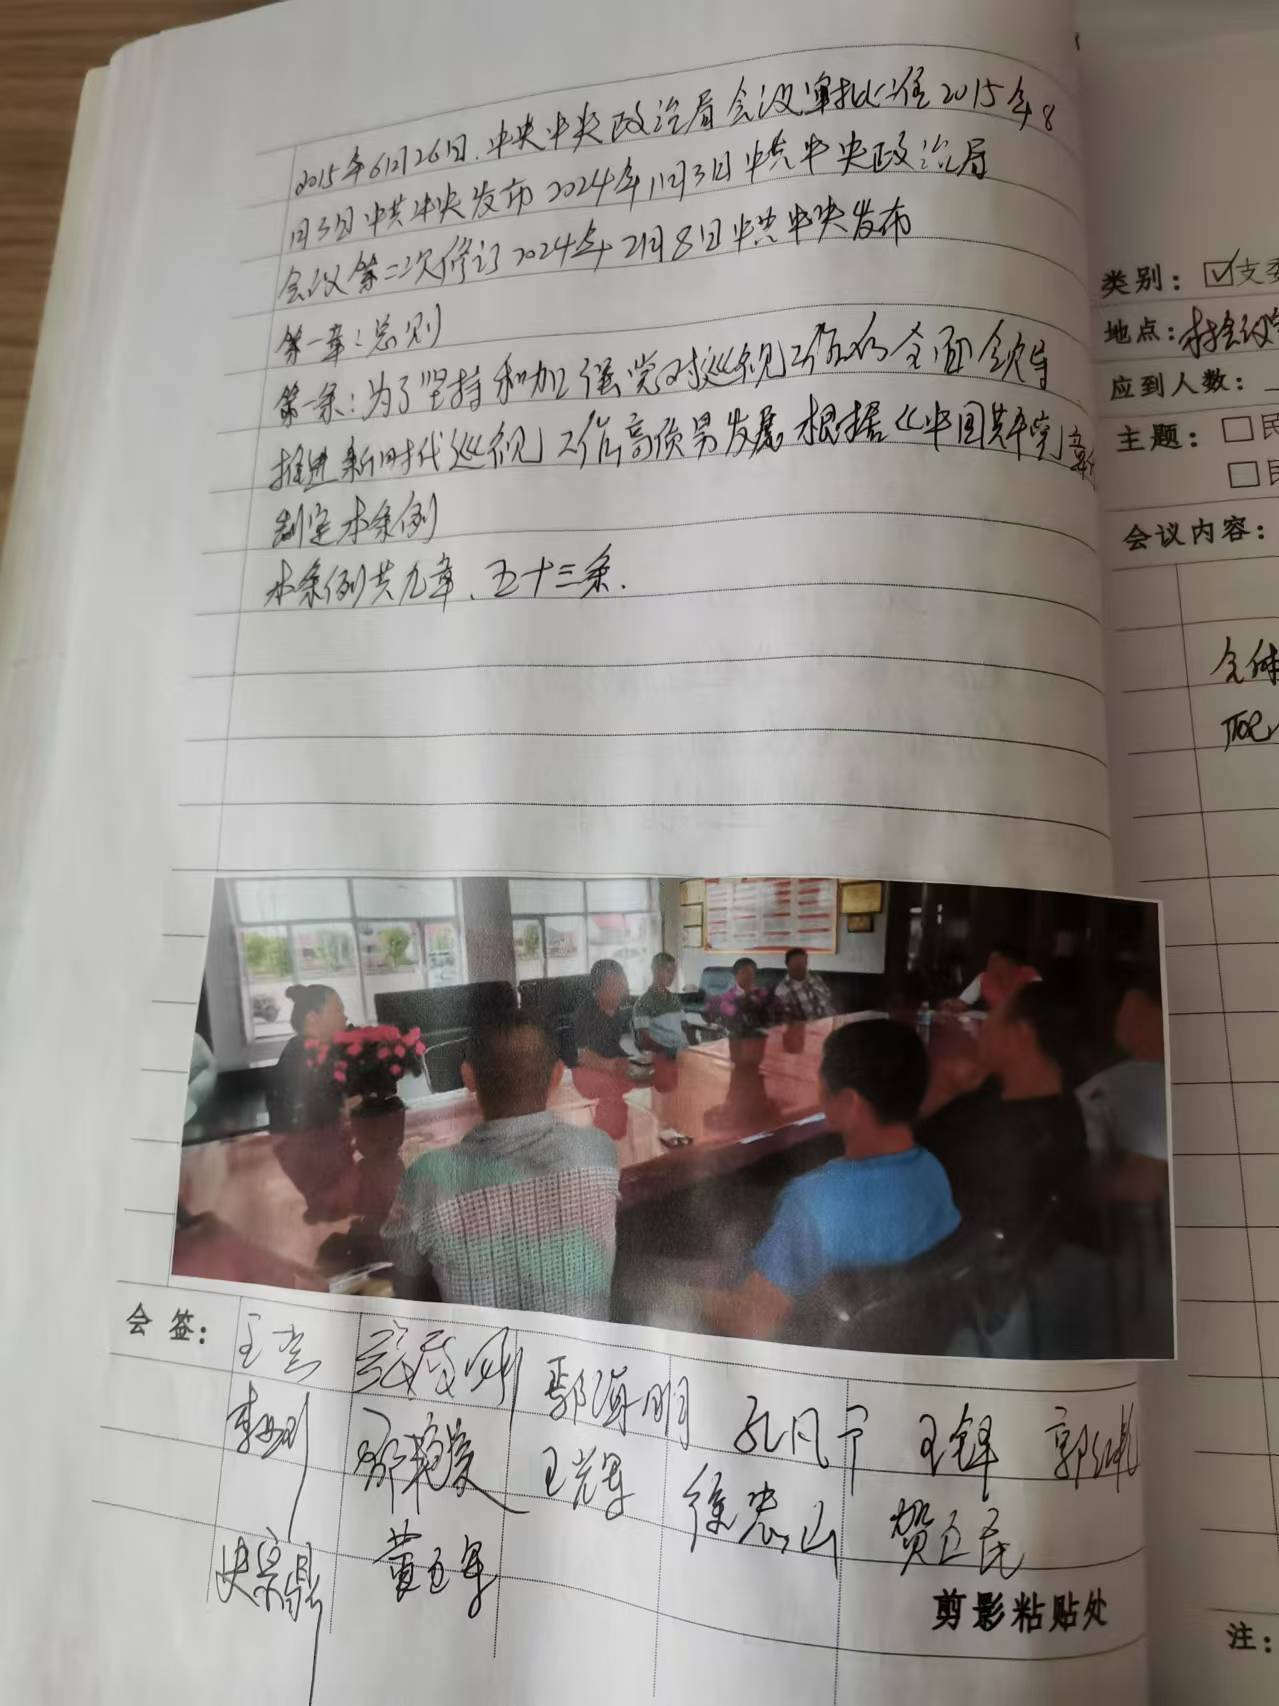 2015年6月26日.中央中央政治局会议审批准2015年8
月3日中共中央发布2024年1月3日中共中央政治局
会议第二次修订2024年2月8日中共中央发布
第一章:总则
第一条:为了坚持和加强党对巡视工作的全面领导
推进新时代巡视工作高质男发展根据《中国共产党章
制定本条例
本条例共九章、五十三条.
会签:
郭海明 孔凡宁 王锋 郭红彬
王光军 徐宏山 贺立民
黄立军
剪影粘贴处
类别:☑支委
地点:村会议室
应到人数:
主题:□民
□民
会议内容:
全体
注: